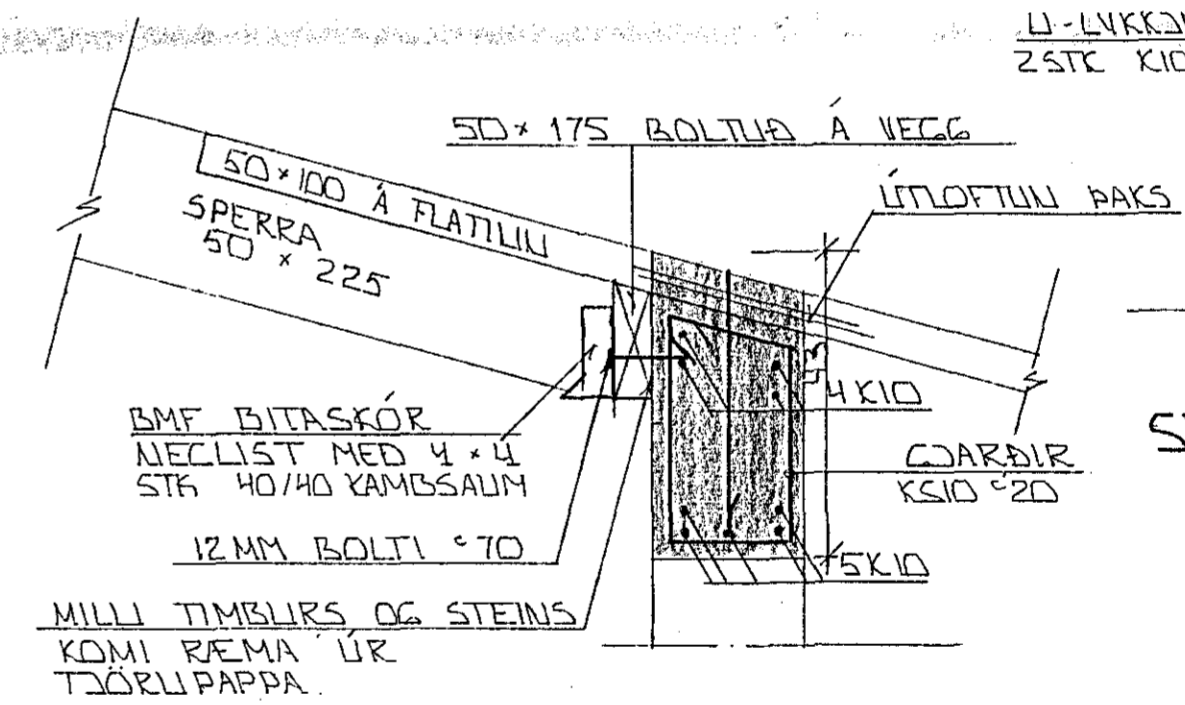 U-LYKKJ
2STK K10
50×175 BOLTUÐ Á VEGG
50×100 Á FLATINN
SPERRA
50 × 225
ÚTLOFTUN ÞAKS
43
4K10
BMF BITASKÓR
NEGLIST MEÐ 4×4
STK 40/40 KAMBSAUM
GJARÐIR
KS10 c20
12MM BOLTI c70
5K10
MILLI TIMBURS OG STEINS
KOMI RÆMA ÚR
TJÖRUPAPPA.